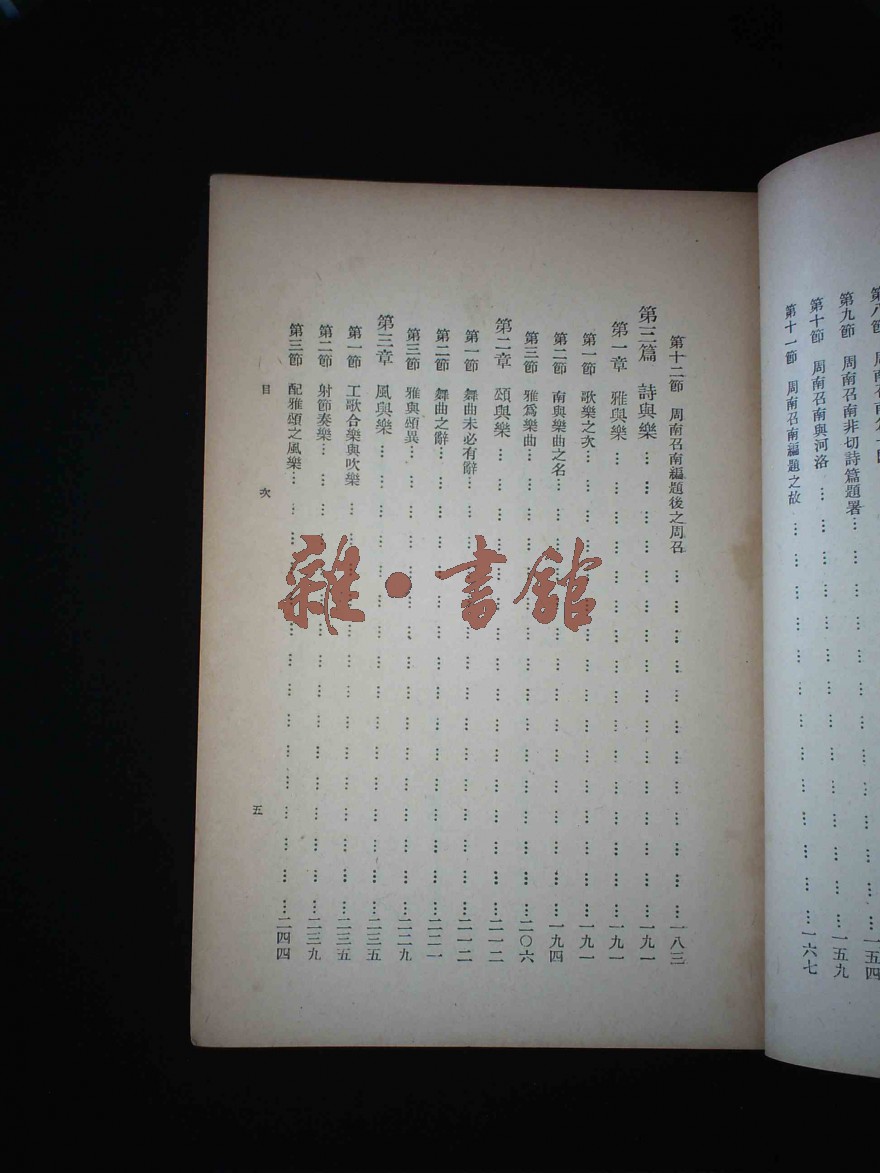 第九節　周南召南非切詩篇題署……一五九
第十節　周南召南與河洛
第十一節　周南召南編題之故……一六七
第十二節　周南召南編題後之周召……一八三
第三篇　詩與樂……一九一
第一章　雅與樂……一九一
第一節　歌樂之次……一九一
第二節　南與樂曲之名……一九四
第三節　雅爲樂曲……二〇六
第二章　頌與樂……二一二
第一節　舞曲未必有辭……二一二
第二節　舞曲之辭……二二一
第三節　雅與頌異……二二九
第三章　風與樂……二三五
第一節　工歌合樂與吹樂……二三五
第二節　射節奏樂……二三九
第三節　配雅頌之風樂……二四四
目次
五
雜·書館